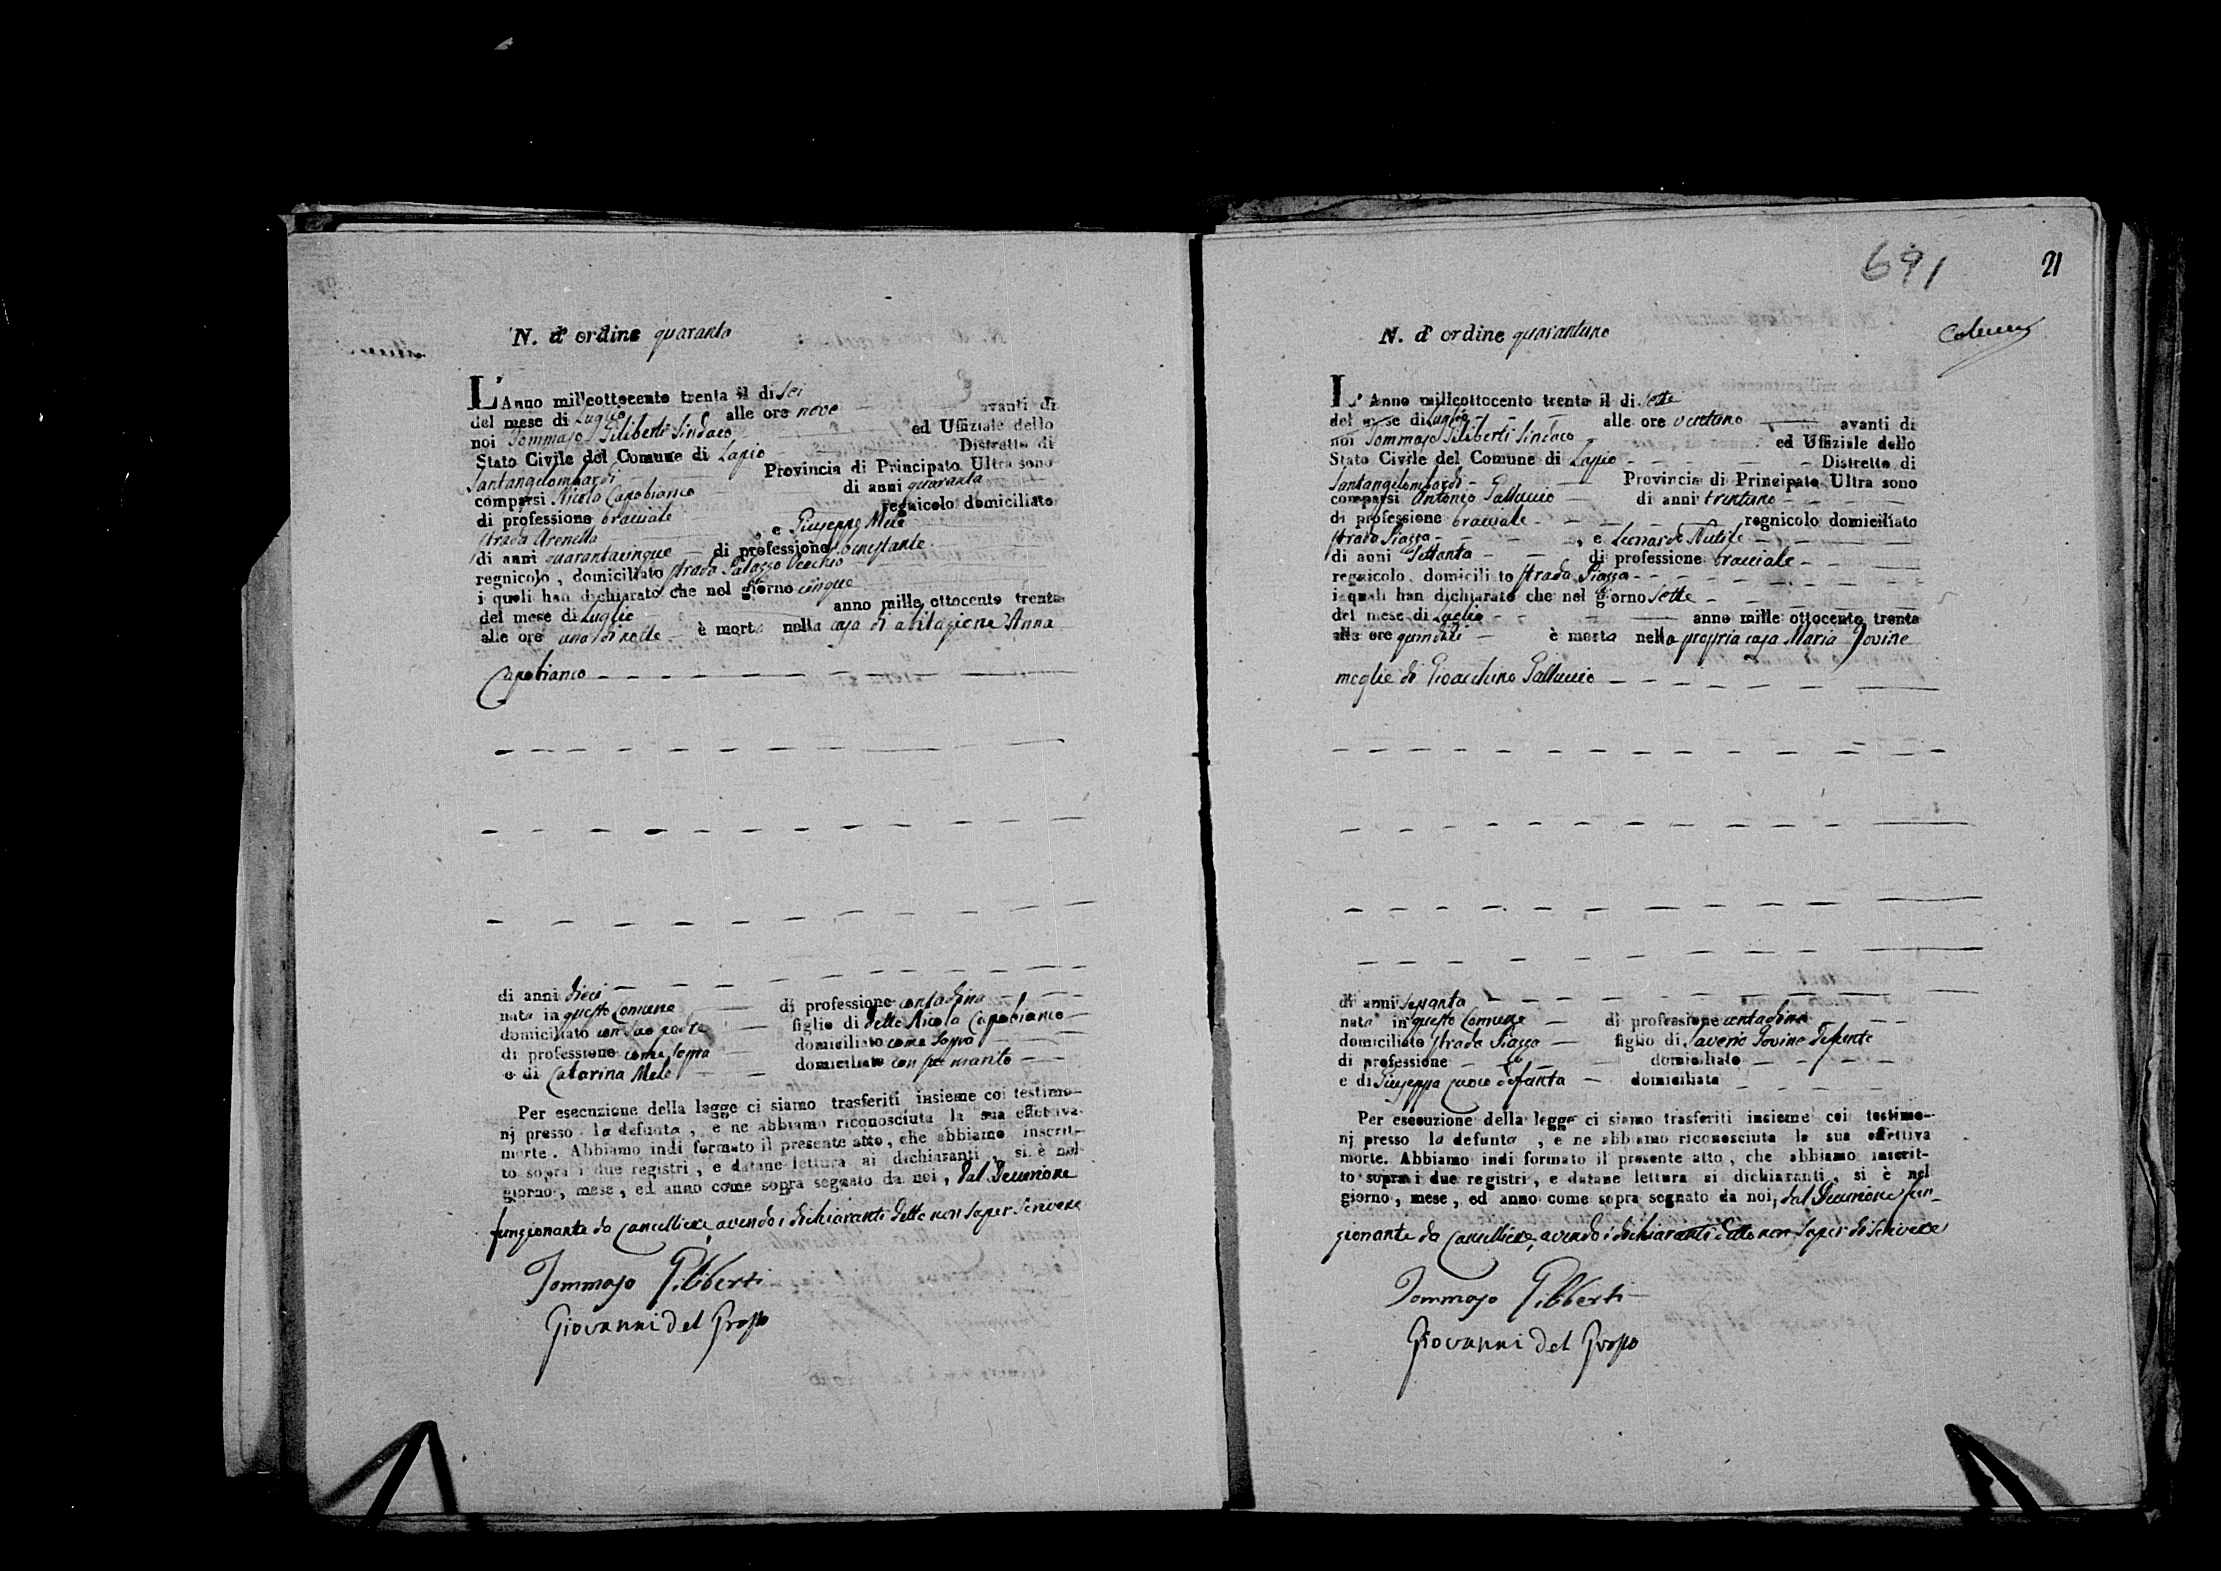 N. d' ordine quaranta
L'Anno mill'eottocento trenta il di sei
del mese di Luglio alle ore nove avanti di
noi Tommaso Filiberti Sindaco ed Uffiziale dello
Stato Civile del Comune di Lapio Distretto di
Santangelombardi Provincia di Principato Ultra sono
comparsi Nicola Capobianco di anni quaranta
di professione bracciale regnicolo domiciliato
strada Arenella , e Giuseppe Mele
di anni quarantacinque di professione benestante
regnicolo , domiciliato strada Palazzo Vecchio
i quali han dichiarato che nel giorno cinque
del mese di Luglio anno mille ottocento trenta
alle ore una di notte è morta nella casa di abitazione Anna
Capobianco
di anni dieci
nata in questo Comune di professione contadina
domiciliato con suo padre figlio di detto Nicola Capobianco
di professione come sopra domiciliato come sopra
e di Catarina Mele domiciliato con suo marito
Per esecuzione della legge ci siamo trasferiti insieme coi testimo-
nj presso la defunta , e ne abbiamo riconosciuta la sua effettiva
morte . Abbiamo indi formato il presente atto , che abbiamo inscrit-
to sopra i due registri , e datane lettura ai dichiaranti , si è nel
giorno , mese , ed anno come sopra segnato da noi , dal Decurione
funzionante da Cancelliere, avendo i dichiaranti detto non saper scrivere
Tommaso Filiberti
Giovanni del Grosso
691
21
N. d' ordine quarantuno
L' Anno millecottocento trenta il di sette
del mese di Luglio alle ore ventuno avanti di
noi Tommaso Filiberti Sindaco ed Uffiziale dello
Stato Civile del Comune di Lapio Distretto di
Santangelombardi Provincia di Principato Ultra sono
comparsi Antonio Galluccio di anni trentuno
di professione bracciale regnicolo domiciliato
strada Piazza , e Leonardo Nutile
di anni settanta di professione bracciale
regnicolo, domiciliato strada Piazza
i quali han dichiarato che nel giorno sette
del mese di Luglio anno mille ottocento trenta
alle ore quindici è morta nella propria casa Maria Jovine
moglie di Gioacchino Galluccio
di anni sessanta
nata in questo Comune di professione contadina
domiciliato strada Piazza figlio di Saverio Jovine defunto
di professione domiciliato
e di Giuseppa defunta domiciliata
Per esecuzione della legge ci siamo trasferiti insieme coi testimo-
nj presso la defunta , e ne abbiamo riconosciuta la sua effettiva
morte. Abbiamo indi formato il presente atto , che abbiamo inscrit-
to sopra i due registri , e datane lettura ai dichiaranti , si è nel
giorno , mese , ed anno come sopra segnato da noi, dal Decurione fun-
zionante da Cancelliere, avendo i dichiaranti detto non saper di scrivere
Tommaso Filiberti
Giovanni del Grosso